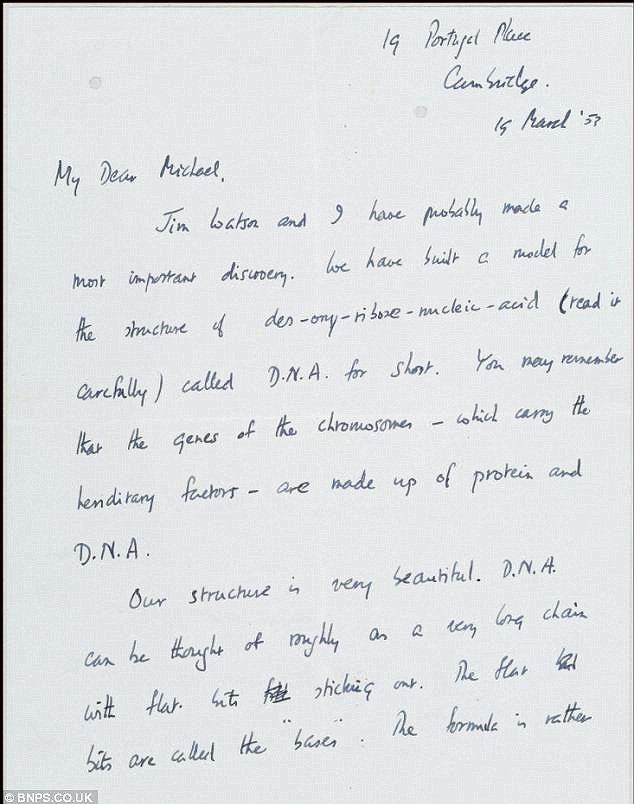 19 Portugal Place
Cambridge.
19 March '53
My Dear Michael,
Jim Watson and I have probably made a
most important discovery. We have built a model for
the structure of des-oxy-ribose-nucleic-acid (read it
carefully) called D.N.A. for short. You may remember
that the genes of the chromosomes – which carry the
hereditary factors – are made up of protein and
D.N.A.
Our structure is very beautiful. D.N.A.
can be thought of roughly as a very long chain
with flat bits sticking out. The flat
bits are called the "bases". The formula is rather
© BNPS.CO.UK